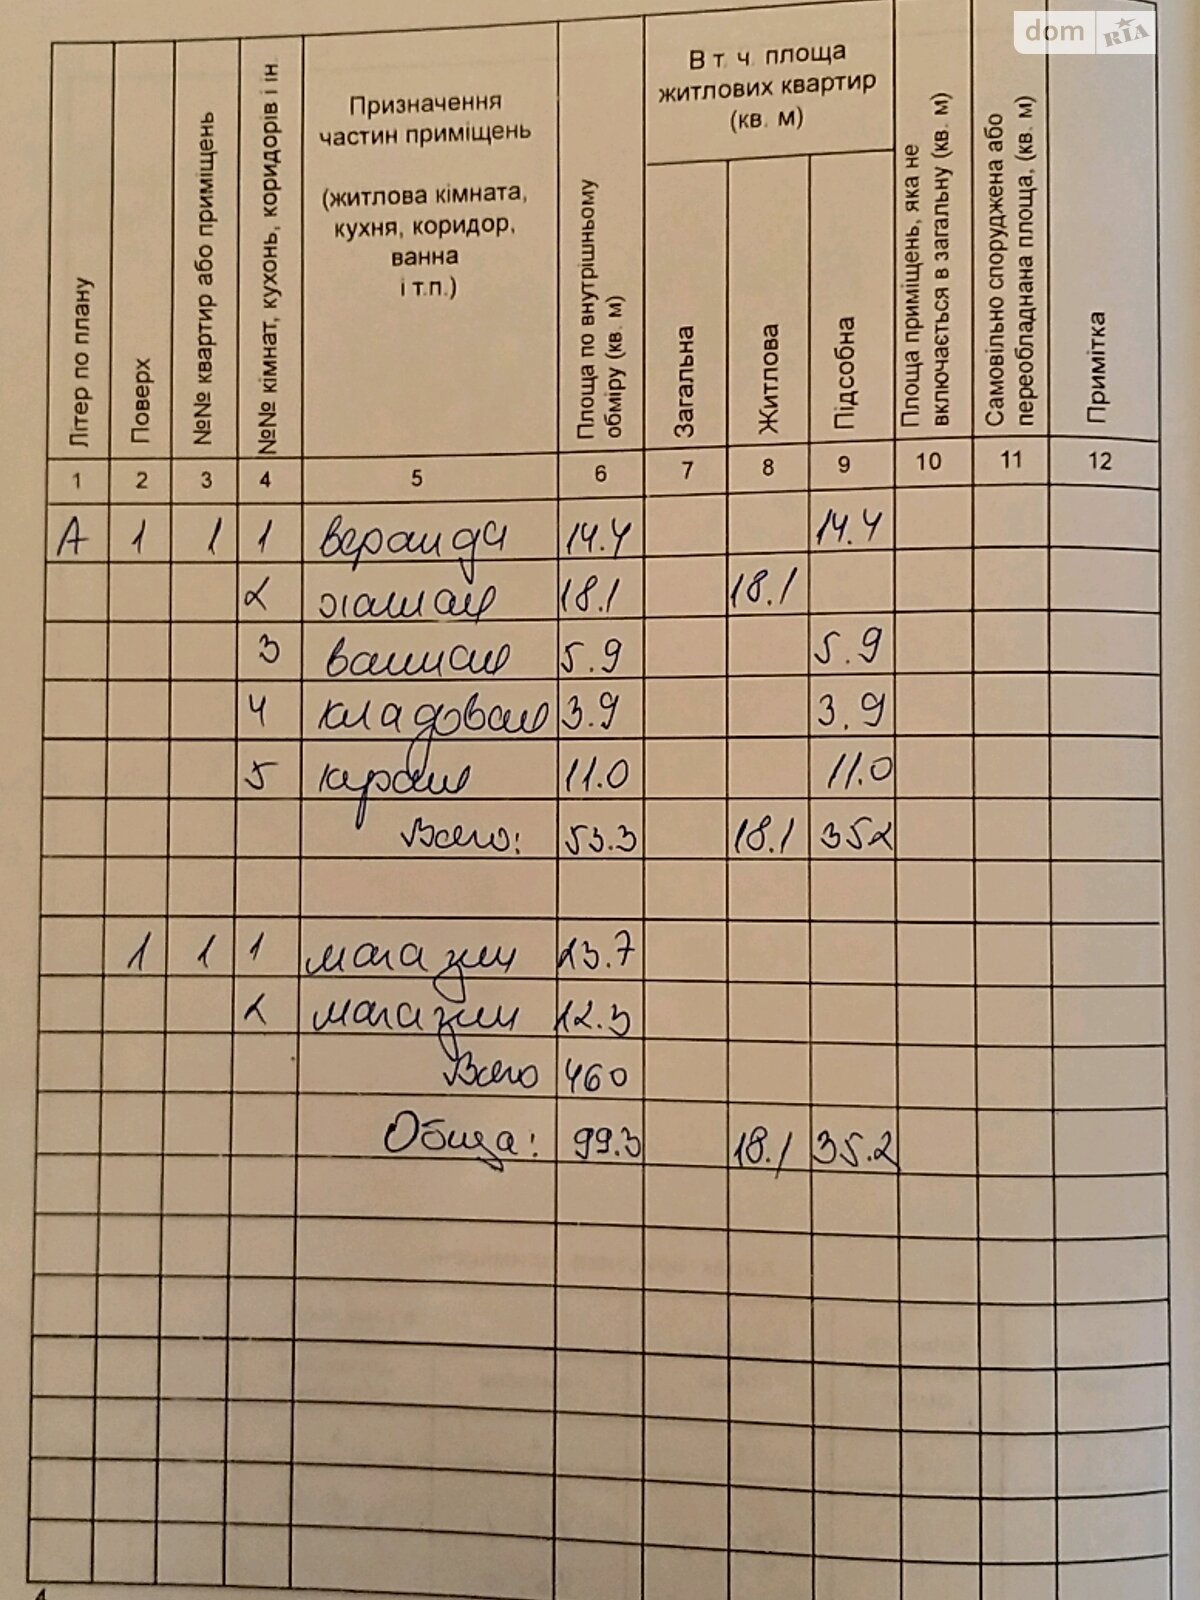 dom RIA
Літер по плану
Поверх
№№ квартир або приміщень
№№ кімнат, кухонь, коридорів і ін.
Призначення
частин приміщень
(житлова кімната,
кухня, коридор,
ванна
і т.п.)
Площа по внутрішньому
обміру (кв. м)
В т. ч. площа
житлових квартир
(кв. м)
Загальна
Житлова
Підсобна
Площа приміщень, яка не
включається в загальну (кв. м)
Самовільно споруджена або
переобладнана площа, (кв. м)
Примітка
1 2 3 4 5 6 7 8 9 10 11 12
А 1 1 1 веранда 14.4 14.4
2 18.1 18.1
3 ванная 5.9 5.9
4 кладовая 3.9 3.9
5 11.0 11.0
Всего: 53.3 18.1 352
1 1 1 магазин 23.7
2 магазин 12.3
Всего 460
Обща: 99.3 18.1 35.2
4